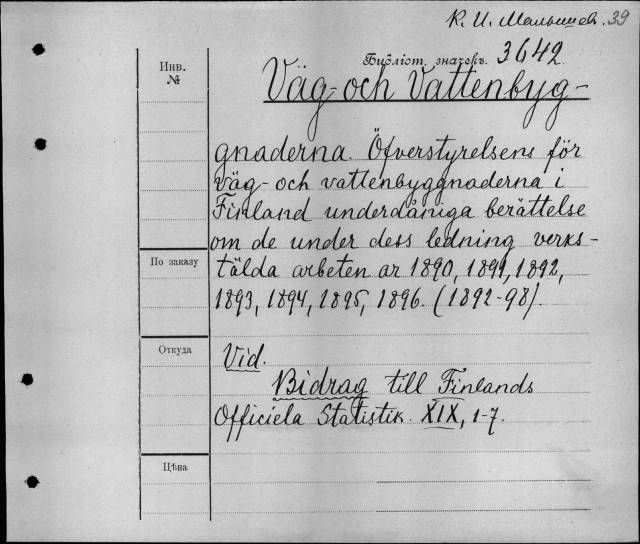 К. И. Малышев. 39
Инв.
№
Библіот. значекъ. 3642.
Väg- och Vattenbyg-
gnaderna. Öfverstyrelsens för
väg- och vattenbyggnaderna i
Finland underdåniga berättelse
om de under dess ledning verks-
tälda arbeten ar 1890, 1891, 1892,
По заказу
1893, 1894, 1895, 1896. (1892-98).
Откуда
Vid.
Bidrag till Finlands
Officiela Statistik. XIX, 1-7.
Цѣна